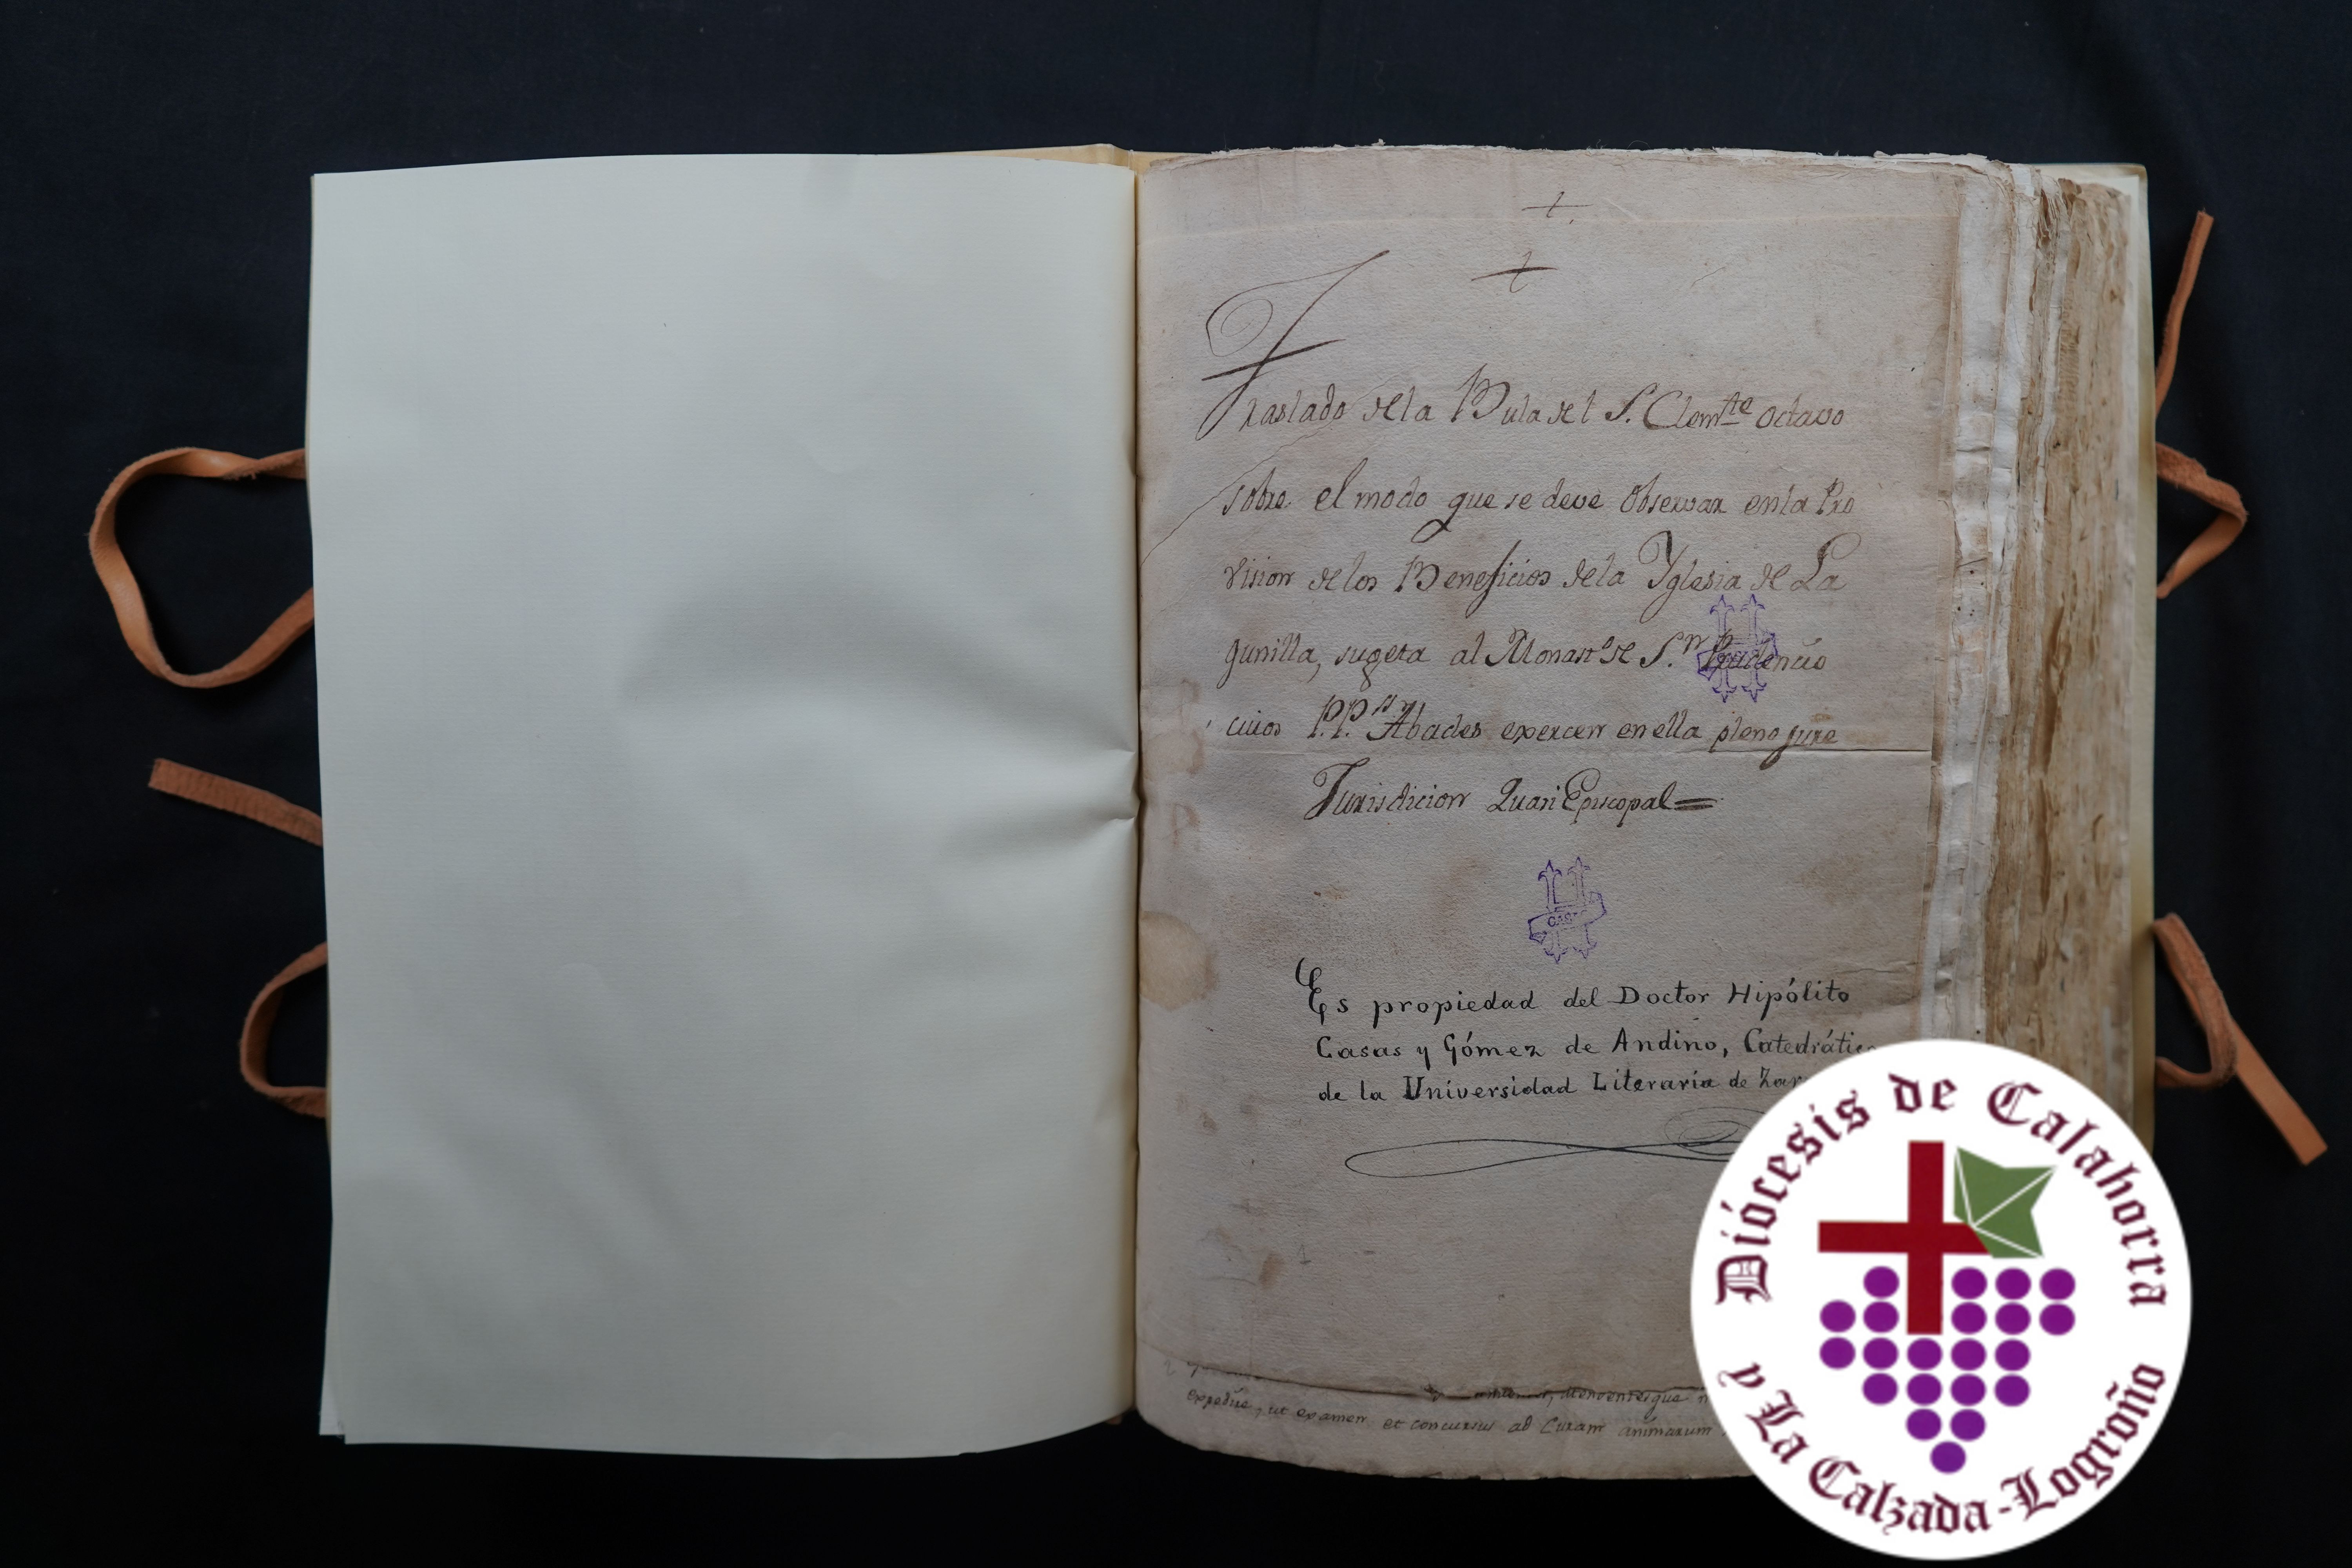 +
+
Traslado de la Bula del S. Clemte Octavo
sobre el modo que se deve Observar en la Pro
vision de los Beneficios de la Yglesia de La
gunilla, sugeta al Monasto de S.n Prudencio
cuios P.P.s Abades exercen en ella pleno jure
Jurisdicion Quasi Episcopal =
CASAS
Es propiedad del Doctor Hipólito
Casas y Gómez de Andino, Catedrático
de la Universidad Literaria de Zar
1
expedire, ut examen et concursus ad Curam animarum
Diócesis de Calahorra
y La Calzada-Logroño